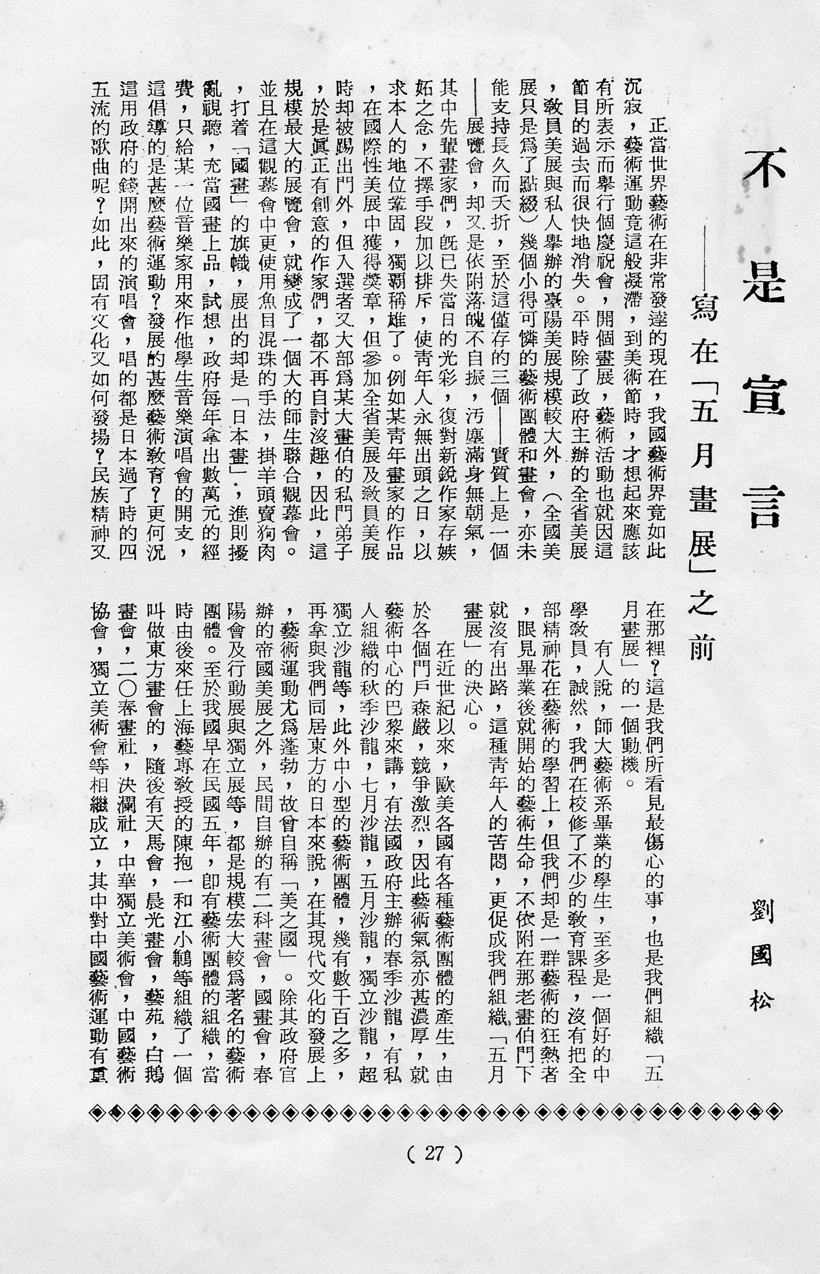 不是宣言
——寫在「五月畫展」之前
劉國松
正當世界藝術在非常發達的現在，我國藝術界竟如此
沉寂，藝術運動竟這般凝滯，到美術節時，才想起來應該
有所表示而舉行個慶祝會，開個畫展，藝術活動也就因這
節目的過去而很快地消失。平時除了政府主辦的全省美展
，敎員美展與私人舉辦的臺陽美展規模較大外，（全國美
展只是爲了點綴）幾個小得可憐的藝術團體和畫會，亦未
能支持長久而夭折，至於這僅存的三個——實質上是一個
——展覽會，却又是依附落魄不自振，汚塵滿身無朝氣，
其中先輩畫家們，旣已失當日的光彩，復對新銳作家存嫉
妬之念，不擇手段加以排斥，使靑年人永無出頭之日，以
求本人的地位鞏固，獨霸稱雄了。例如某靑年畫家的作品
，在國際性美展中獲得獎章，但參加全省美展及敎員美展
時却被踢出門外，但入選者又大部爲某大畫伯的私門弟子
，於是眞正有創意的作家們，都不再自討沒趣，因此，這
規模最大的展覽會，就變成了一個大的師生聯合觀摹會。
並且在這觀摹會中更使用魚目混珠的手法，掛羊頭賣狗肉
，打着「國畫」的旗幟，展出的却是「日本畫」，進則擾
亂視聽，充當國畫上品，試想，政府每年拿出數萬元的經
費，只給某一位音樂家用來作他學生音樂演唱會的開支，
這倡導的是甚麽藝術運動？發展的甚麽藝術敎育？更何況
這用政府的錢開出來的演唱會，唱的都是日本過了時的四
五流的歌曲呢？如此，固有文化又如何發揚？民族精神又
在那裡？這是我們所看見最傷心的事，也是我們組織「五
月畫展」的一個動機。
有人說，師大藝術系畢業的學生，至多是一個好的中
學敎員，誠然，我們在校修了不少的敎育課程，沒有把全
部精神花在藝術的學習上，但我們却是一群藝術的狂熱者
，眼見畢業後就開始的藝術生命，不依附在那老畫伯門下
就沒有出路，這種靑年人的苦悶，更促成我們組織「五月
畫展」的決心。
在近世紀以來，歐美各國有各種藝術團體的產生，由
於各個門戶森嚴，競爭激烈，因此藝術氣氛亦甚濃厚，就
藝術中心的巴黎來講，有法國政府主辦的春季沙龍，有私
人組織的秋季沙龍，七月沙龍，五月沙龍，獨立沙龍，超
獨立沙龍等，此外中小型的藝術團體，幾有數千百之多，
再拿與我們同居東方的日本來說，在其現代文化的發展上
，藝術運動尤爲蓬勃，故曾自稱「美之國」。除其政府官
辦的帝國美展之外，民間自辦的有二科畫會，國畫會，春
陽會及行動展與獨立展等，都是規模宏大較爲著名的藝術
團體。至於我國早在民國五年，卽有藝術團體的組織，當
時由後來任上海藝專敎授的陳抱一和江小鶼等組織了一個
叫做東方畫會的，隨後有天馬會，晨光畫會，藝苑，白鵝
畫會，二〇春畫社，決瀾社，中華獨立美術會，中國藝術
協會，獨立美術會等相繼成立，其中對中國藝術運動有重
（27）